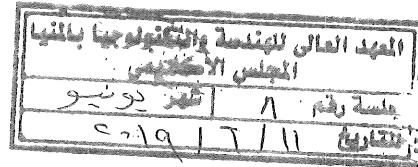 المعهد العالى للهندسة والتكنولوجيا بالمنيا
المجلس الأكاديمى
جلسة رقم ٨ شهر يونيو
التاريخ ١١ / ٦ / ٢٠١٩